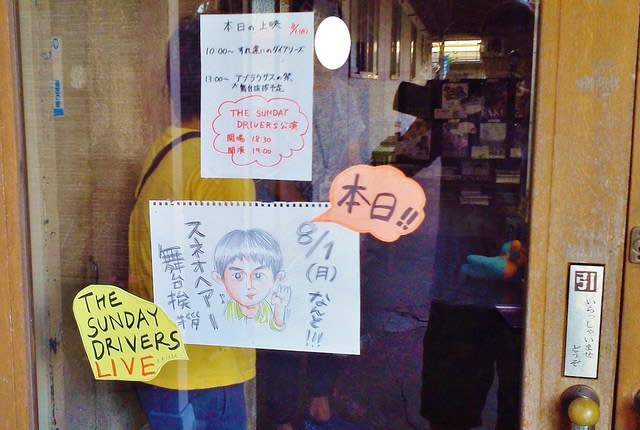 本日の上映 8/1(月)
10:00〜 すれ違いのダイアリーズ
13:00〜 アブラクサスの祭
舞台挨拶予定
THE SUNDAY
DRIVERS公演
開場 18:30
開演 19:00
本日!!
8/1(月)なんと!!!
スネオヘアー
舞台挨拶
THE
SUNDAY
DRIVERS
LIVE
引
いらっしゃいませ
どうぞ